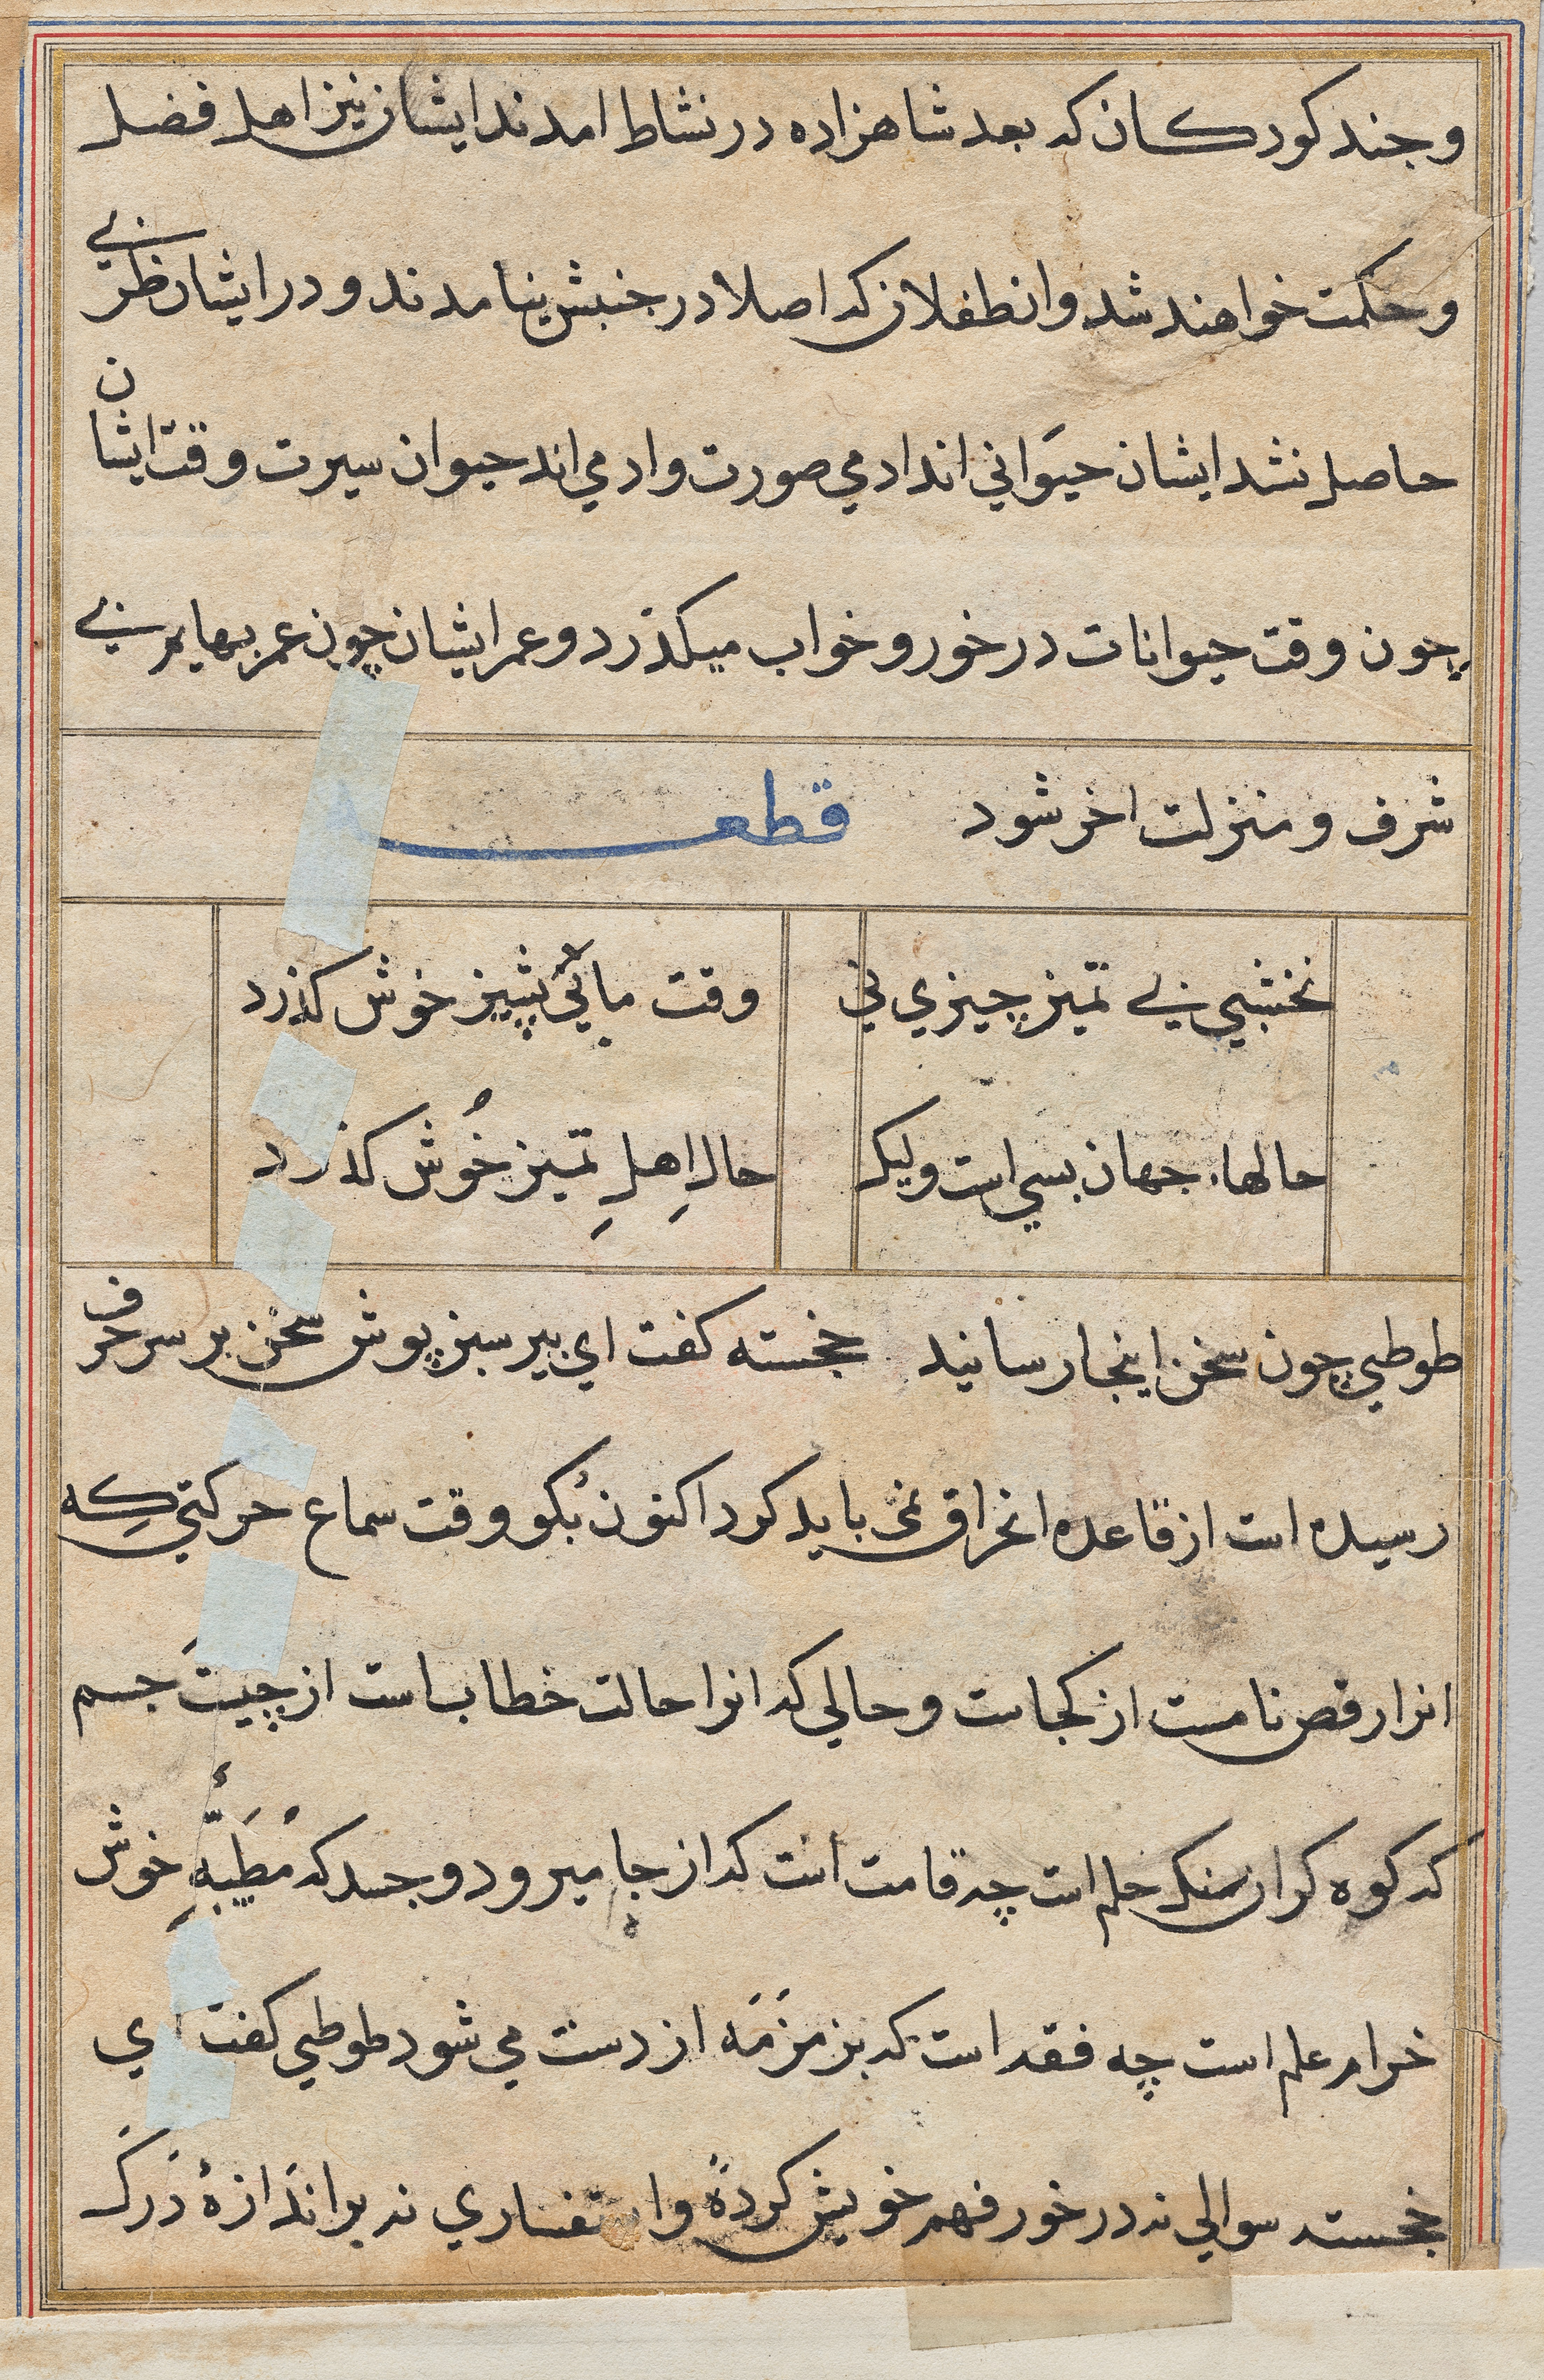 و جند کودکان که بعد شاهزاده در نشاط امدند ایشان نیز اهل فضل
و حکمت خواهند شد وان طفلان که اصلا در جنبش نیامدند و در ایشان طربی
حاصل نشد ایشان حیَوانی اند ادمی صورت وادمی اند حیوان سیرت وقت ایشان
چون وقت حیوانات در خور و خواب میکذرد و عمر ایشان چون عمر بهایم بی
شرف و منزلت اخر شود قطعه
نخشبی بی تمیز چیزی نی وقت با بی پشیز خوش کذرد
حالهاء جهان بسی است ولیک حالِ اهلِ تمیز خُوش کذرد
طوطی چون سخن اینجا رسانید خجسته کفت ای پیر سبز پوش سخن بر سر حرف
رسیده است از قاعده انحراق نمی باید کرد اکنون بُکو وقت سماع حرکتی کِه
انرا رقص نامست از کجاست و حالی که انرا حالت خطاب است از چیستَ جسم
که کوه کران سنک حلم است چه قامت است که از جا میرود و جسد که مُطَیَّبهِٔ خوش
خرام علم است چه فقد است که بزمزَمَه از دست می شود طوطی کفت ای
خجسته سوالی نه در خور فهم خویش کردهٔ واستفساری نه بر اندَازهٔ دَرکَ